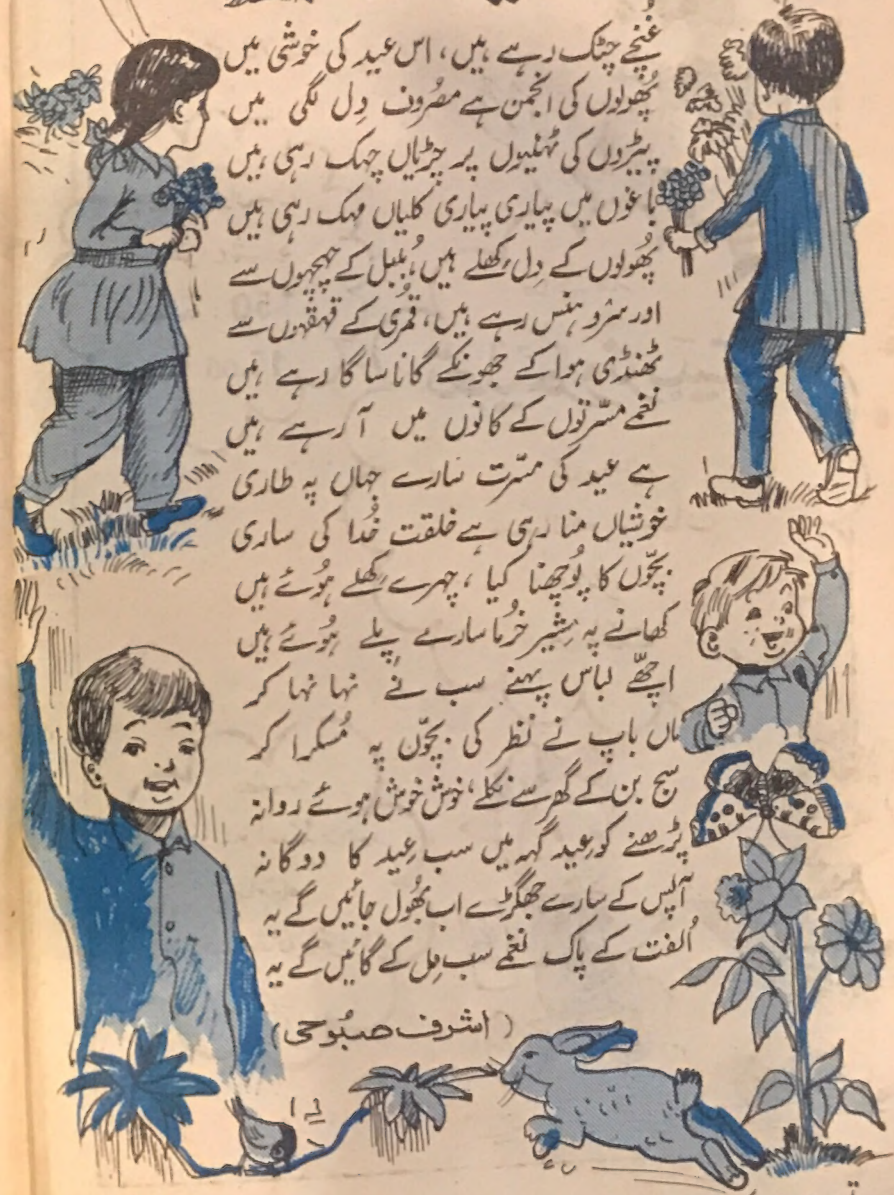 غُنچے چٹک رہے ہیں، اس عید کی خوشی میں
پھُولوں کی انجمن ہے مصرُوف دِل لگی میں
پیڑوں کی ٹہنیوں پر چڑیاں چہک رہی ہیں
باغوں میں پیاری پیاری کلیاں مہک رہی ہیں
پھُولوں کے دِل کھِلے ہیں، بُلبل کے چہچہوں سے
اور سرو ہنس رہے ہیں، قمُری کے قہقہوں سے
ٹھنڈی ہوا کے جھونکے گانا سا گا رہے ہیں
نغمے مسّرتوں کے کانوں میں آ رہے ہیں
ہے عید کی مسّرت سارے جہاں پہ طاری
خوشیاں منا رہی ہے خلقت خُدا کی ساری
بچّوں کا پُوچھنا کیا، چہرے کھِلے ہُوئے ہیں
کھانے پہ شِیر خرُما سارے پِلے ہُوئے ہیں
اچھّے لباس پہنے سب نے نہا نہا کر
ماں باپ نے نظر کی بچّوں پہ مُسکرا کر
سج بن کے گھر سے نکلے، خوش خوش ہوئے روانہ
پڑھنے کو عید گہہ میں سب عِید کا دوگانہ
آپس کے سارے جھگڑے اب بھُول جائیں گے یہ
اُلفت کے پاک نغمے سب مِل کے گائیں گے یہ
(اشرف صبُوحی)